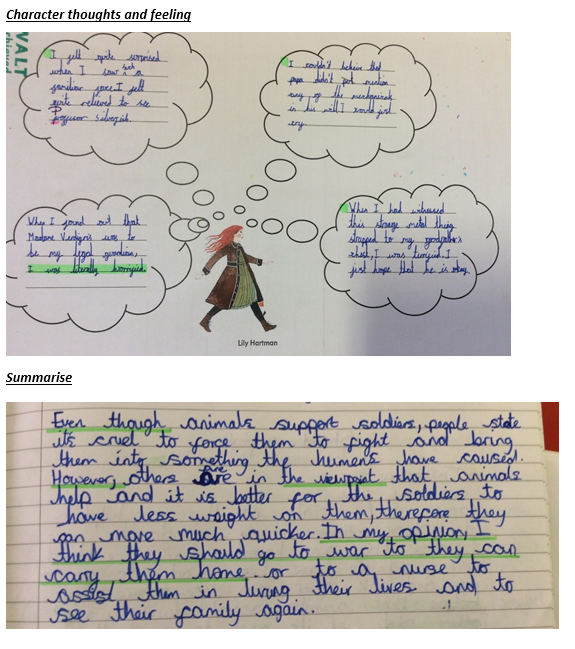 Character thoughts and feeling
WALT
I felt quite surprised
when I saw such a
familiar face. I felt
quite relieved to see
Professor Silverfish.
I couldn't believe that
papa didn't put mention
any of the mechanicals
in his will I could just
cry.
When I found out that
Madame Verdigris was to
be my legal guardian,
I was literally horrified.
When I had witnessed
this strange metal thing
strapped to my godfather's
chest, I was terrified. I
just hope that he is okay.
Lily Hartman
Summarise
Even though animals support soldiers, people state
its cruel to force them to fight and bring
them into something the humens have caused.
However, others are in the viewpoint that animals
help and it is better for the soldiers to
have less weight on them, therefore they
can move much quicker. In my opinion, I
think they should go to war to they can
carry them home or to a nurse to
assist them in living their lives and to
see their family again.